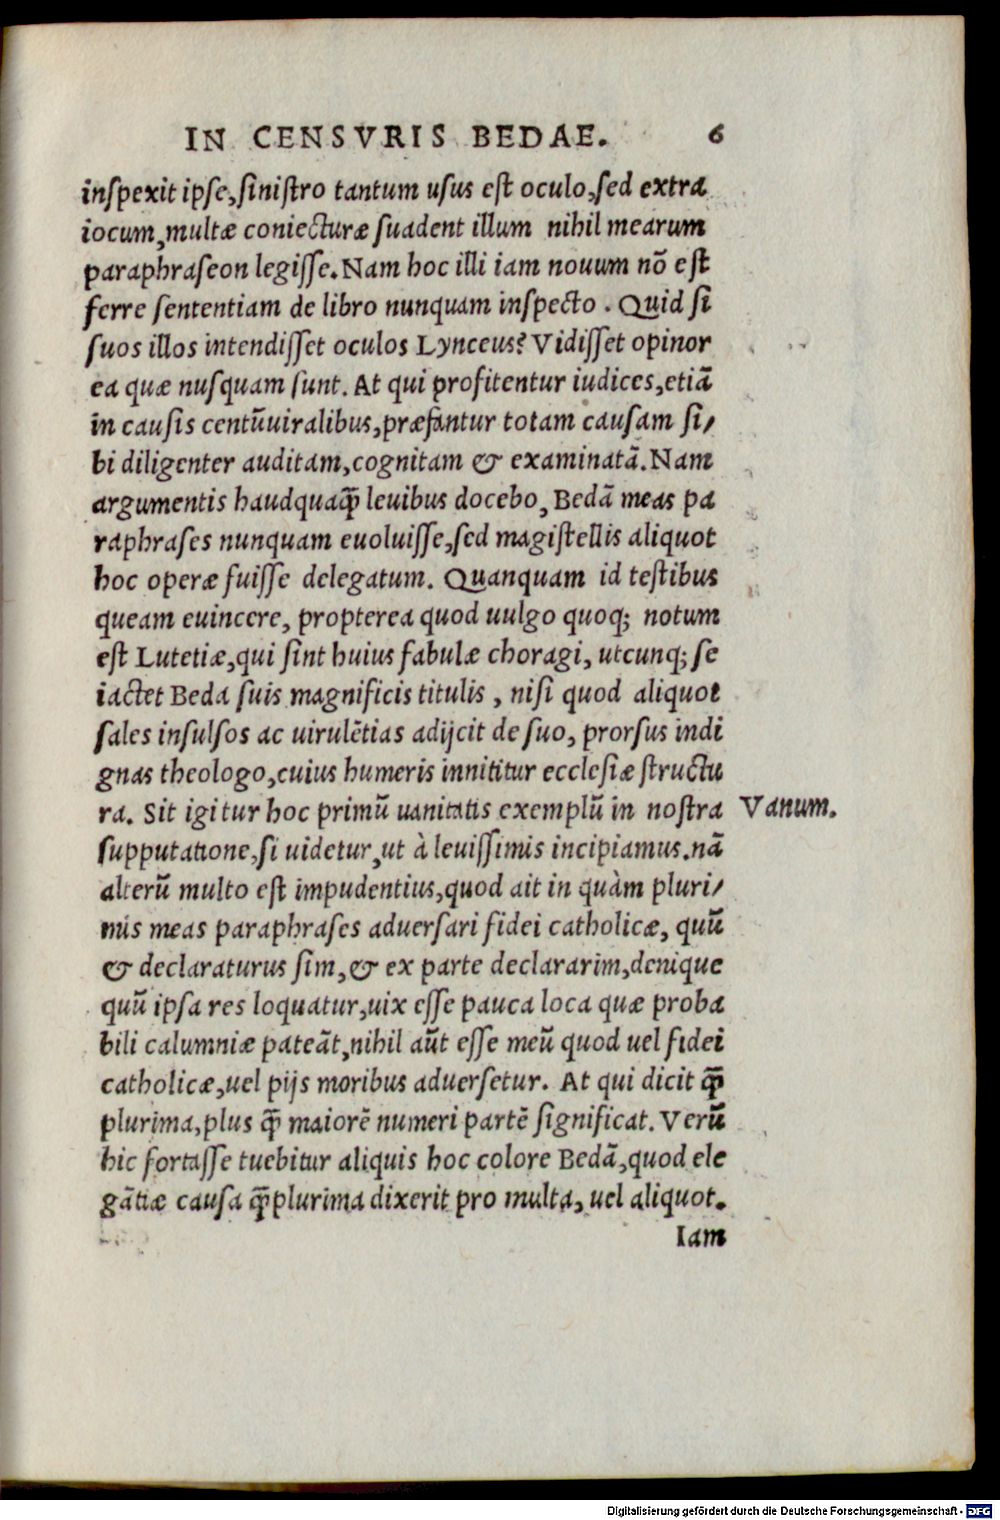 IN CENSVRIS BEDAE. 6
inſpexit ipſe, ſiniſtro tantum uſus eſt oculo, ſed extra
iocum, multæ coniecturæ ſuadent illum nihil mearum
paraphraſeon legiſſe. Nam hoc illi iam nouum nõ eſt
ferre ſententiam de libro nunquam inſpecto. Quid ſi
ſuos illos intendiſſet oculos Lynceus? Vidiſſet opinor
ea quæ nuſquam ſunt. At qui profitentur iudices, etiã
in cauſis centũuiralibus, præfantur totam cauſam ſi/
bi diligenter auditam, cognitam & examinatã. Nam
argumentis haudquaq̃ leuibus docebo, Bedã meas pa
raphraſes nunquam euoluiſſe, ſed magiſtellis aliquot
hoc operæ fuiſſe delegatum. Quanquam id teſtibus
queam euincere, propterea quod uulgo quoq; notum
eſt Lutetiæ, qui ſint huius fabulæ choragi, utcunq; ſe
iactet Beda ſuis magnificis titulis, niſi quod aliquot
ſales inſulſos ac uirulẽtias adijcit de ſuo, prorſus indi
gnas theologo, cuius humeris innititur eccleſiæ ſtructu
ra. Sit igitur hoc primũ uanitatis exemplũ in noſtra
Vanum.
ſupputatione, ſi uidetur, ut à leuiſſimis incipiamus. nã
alterũ multo eſt impudentius, quod ait in quàm pluri/
mis meas paraphraſes aduerſari fidei catholicæ, quũ
& declaraturus ſim, & ex parte declararim, denique
quũ ipſa res loquatur, uix eſſe pauca loca quæ proba
bili calumniæ pateãt, nihil aũt eſſe meũ quod uel fidei
catholicæ, uel pijs moribus aduerſetur. At qui dicit q̃
plurima, plus q̃ maiorẽ numeri partẽ ſignificat. Verũ
hic fortaſſe tuebitur aliquis hoc colore Bedã, quod ele
gãtiæ cauſa q̃plurima dixerit pro multa, uel aliquot.
Iam
Digitalisierung gefördert durch die Deutsche Forschungsgemeinschaft - DFG